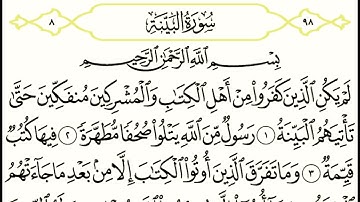 ٩٨ سُورَةُ الْبَيِّنَةِ ٨
بِسْمِ اللَّهِ الرَّحْمَٰنِ الرَّحِيمِ
لَمْ يَكُنِ الَّذِينَ كَفَرُوا مِنْ أَهْلِ الْكِتَابِ وَالْمُشْرِكِينَ مُنفَكِّينَ حَتَّىٰ
تَأْتِيَهُمُ الْبَيِّنَةُ ١ رَسُولٌ مِّنَ اللَّهِ يَتْلُوا صُحُفًا مُّطَهَّرَةً ٢ فِيهَا كُتُبٌ
قَيِّمَةٌ ٣ وَمَا تَفَرَّقَ الَّذِينَ أُوتُوا الْكِتَابَ إِلَّا مِن بَعْدِ مَا جَاءَتْهُمُ